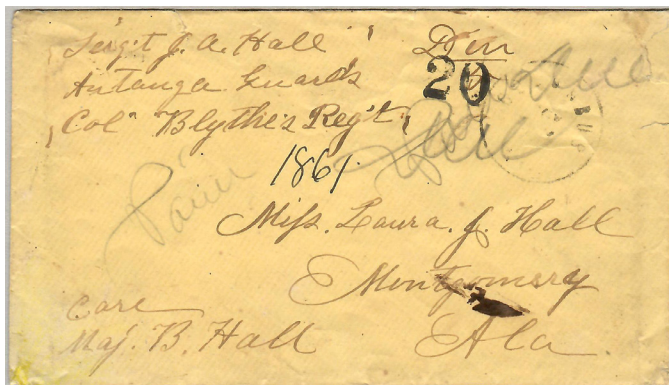 Serg't J. A. Hall
Autauga Guards
Col Blythe's Reg't,
Due
20
Due
1861.
Miss. Laura. J. Hall
Montgomery
Ala.
Care
Maj. B. Hall